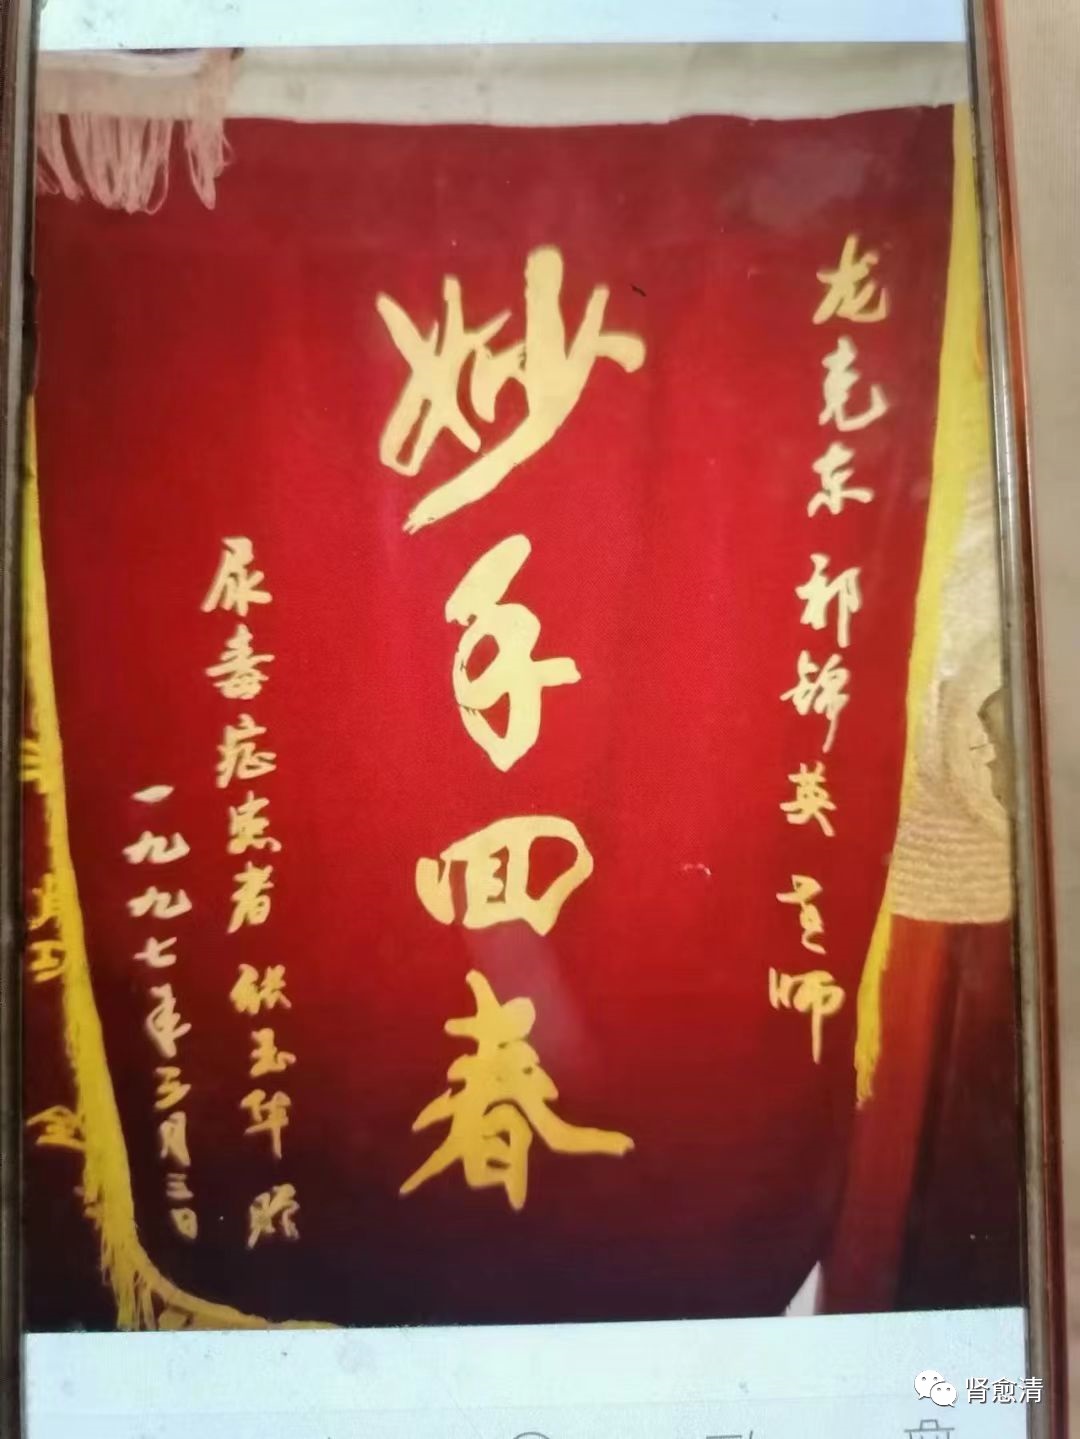 龙克东 锦英 师
妙手回春
尿毒症患者 玉华 赠
一九九七年三月三日
肾愈清